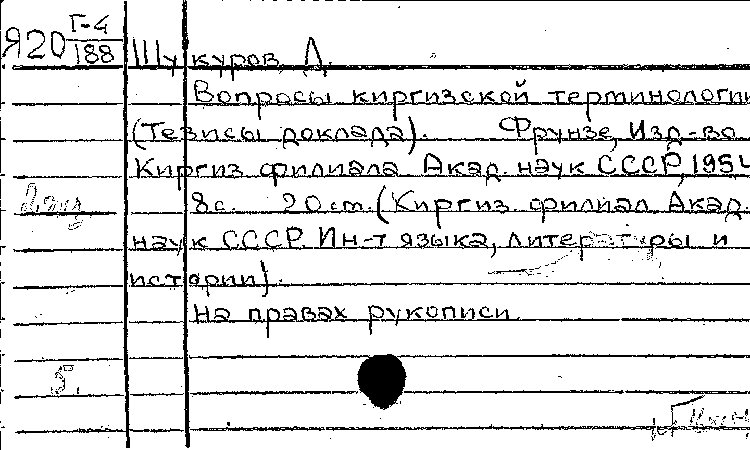 Я20 Г-4/188
Шукуров, Д.
Вопросы киргизской терминологии
(Тезисы доклада). Фрунзе, Изд-во
Киргиз. филиала Акад. наук СССР, 1954
8с. 20 ст. (Киргиз. филиал Акад.
наук СССР. Ин-т языка, литературы и
истории).
На правах рукописи.
5.